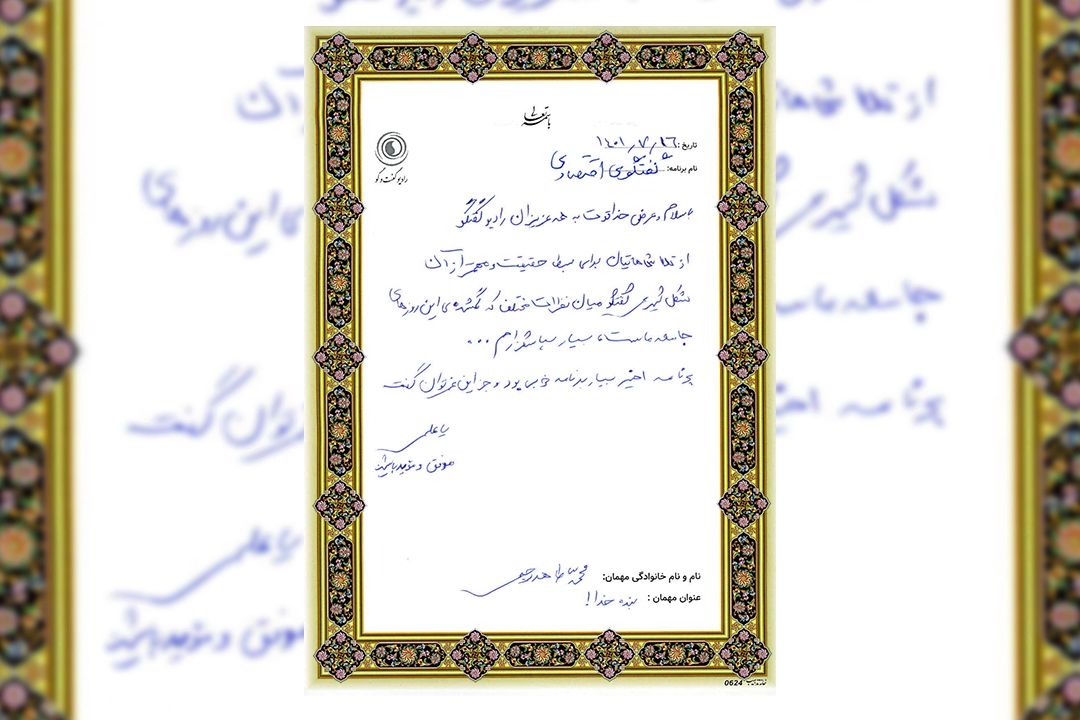 باسمه تعالی
رادیو گفت و گو
تاریخ: ۱۴۰۱٫۷٫۱۶
نام برنامه: گفتگوی اقتصادی
باسلام و عرض خداقوت به همه عزیزان رادیو گفتگو
از تلاشهایتان برای بسط حقیقت و مهمتر از آن
شکل گیری گفتگو میان نظرات مختلف که گمشده‌ی این روزهای
جامعه ماست، بسیار سپاسگزارم ...
برنامه اخیر بسیار برنامه خوبی بود و جز این نمی‌توان گفت
یا علی
موفق و موید باشید
نام و نام خانوادگی مهمان: محمد طاهر رحیمی
عنوان مهمان: بنده خدا!
0624